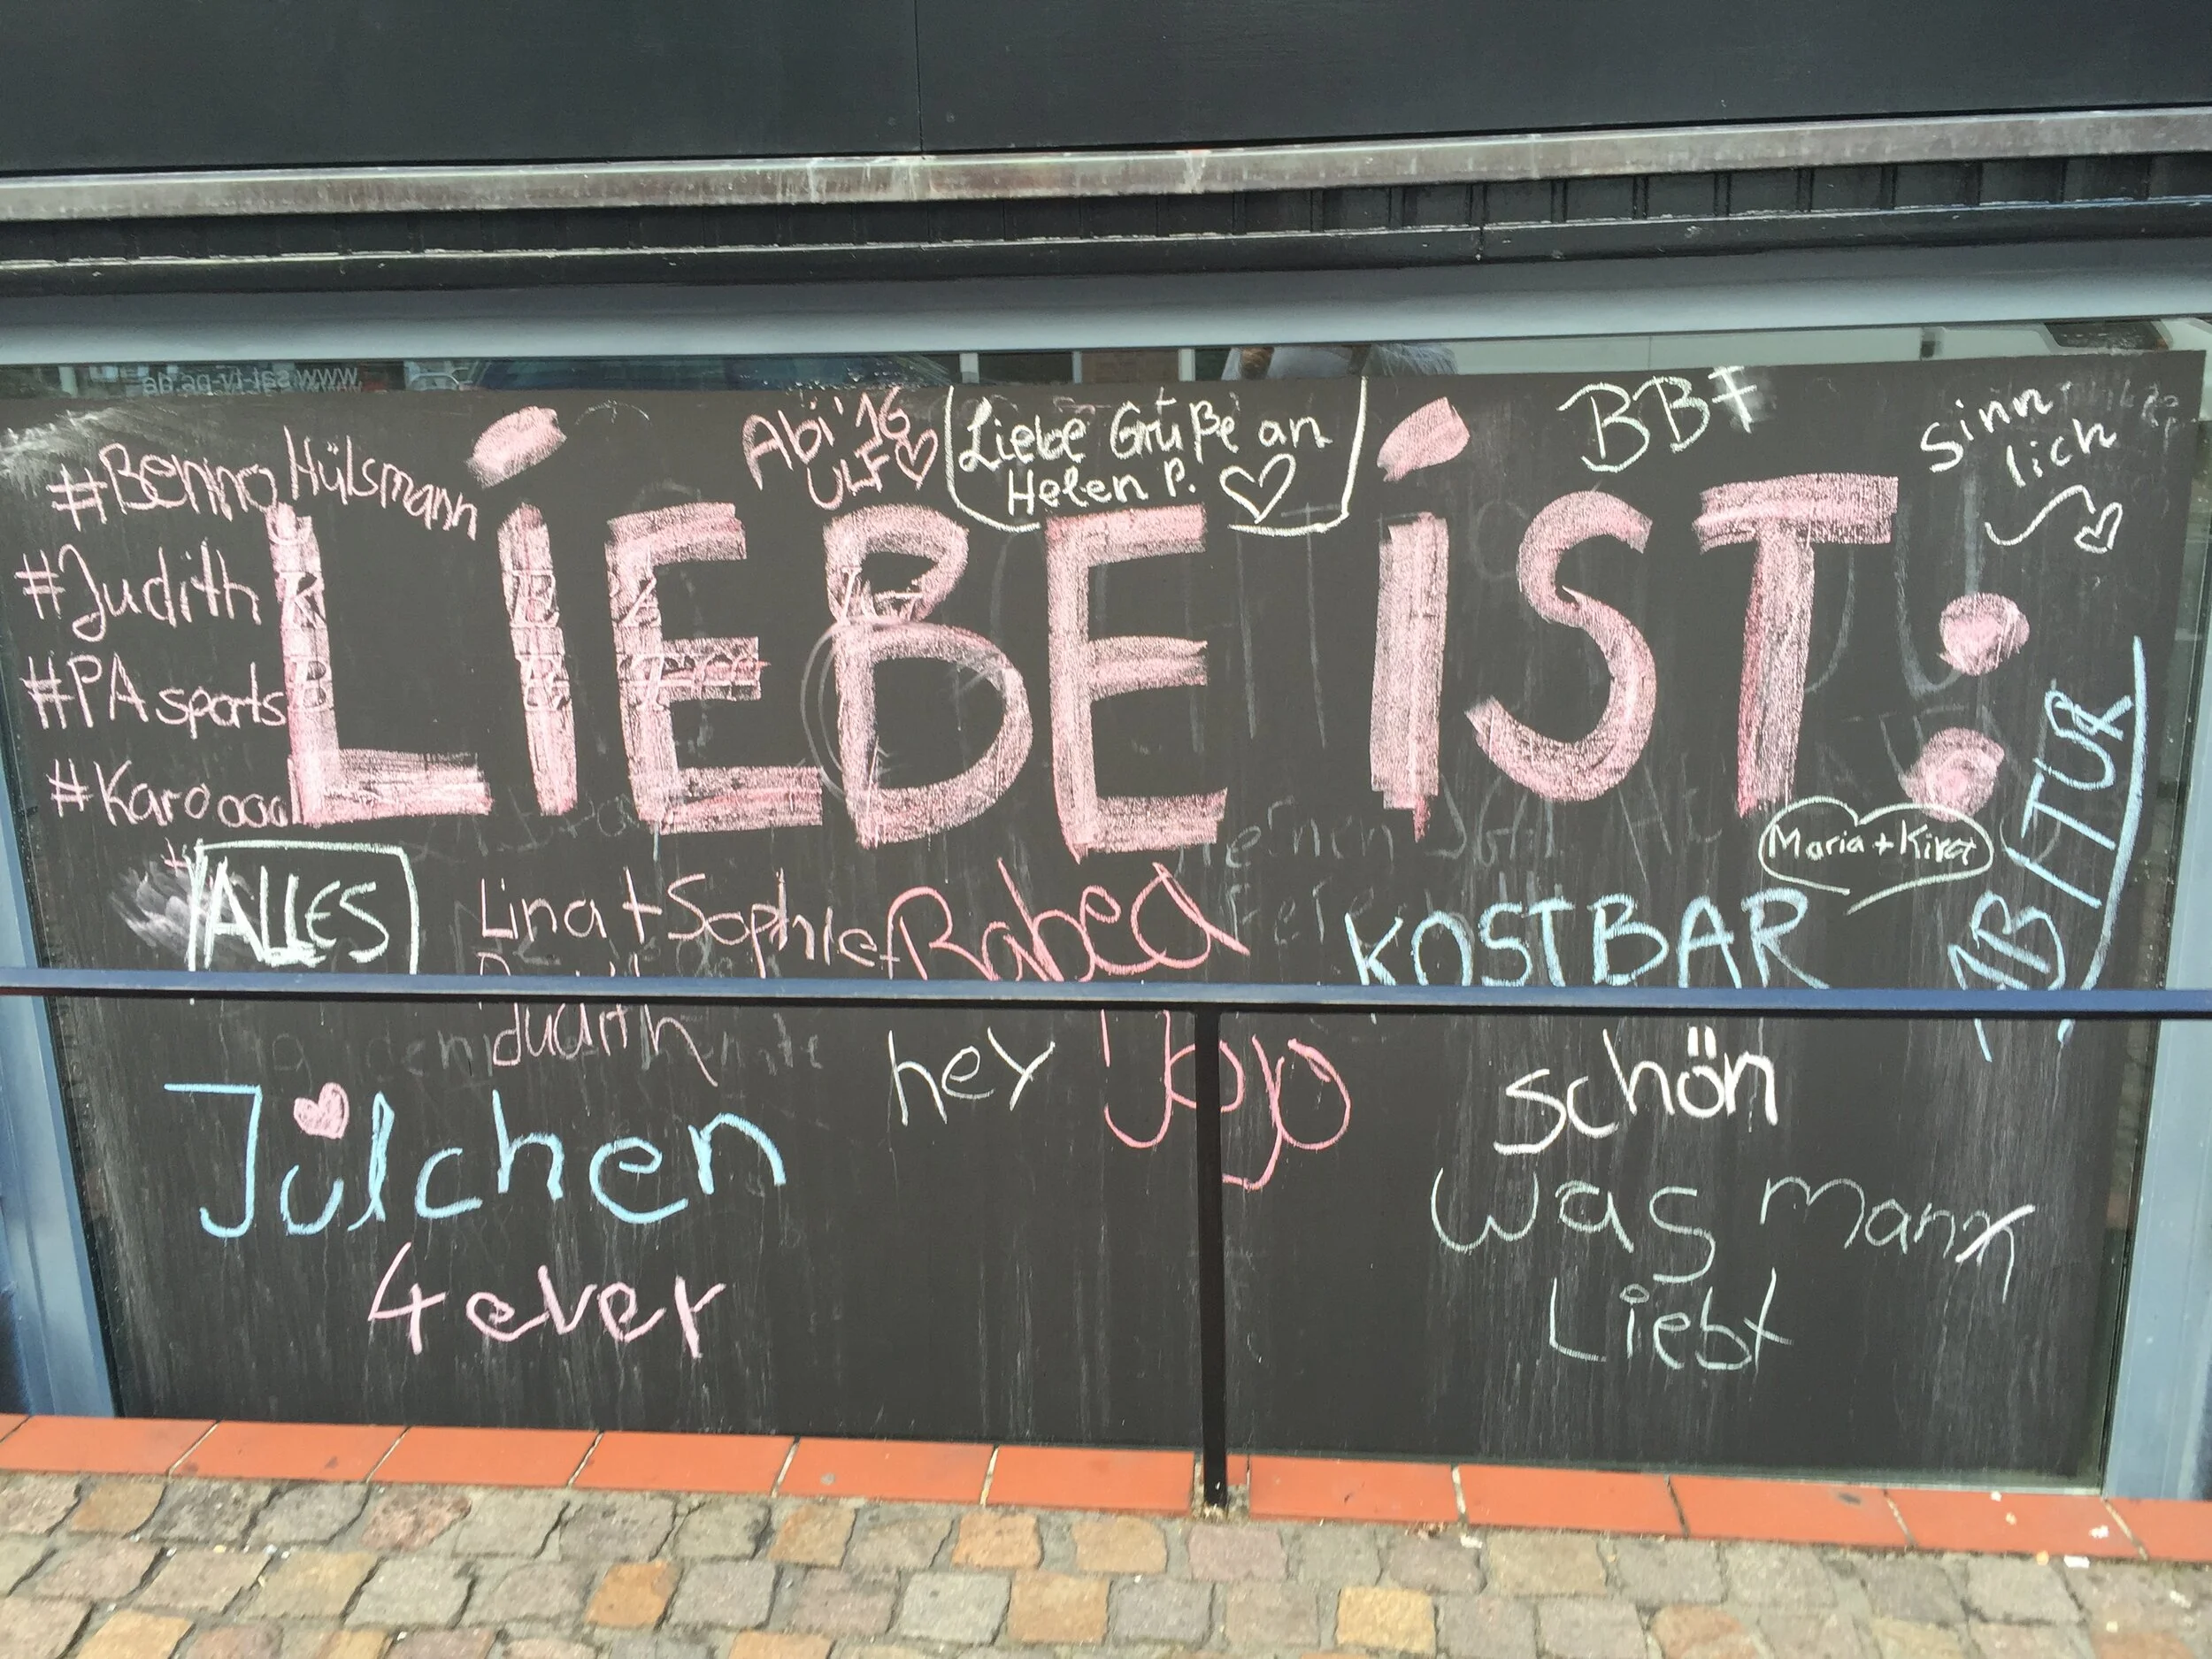 #Benno Hülsmann
#Judith
#PA sports
#Karoooo
Abi '16
ULF
Liebe Grüße an
Helen P.
BBF
Sinn
lich
LiEBE iST:
ABITUR
Maria +
ALLES
Lina + Sophie + Rabea
Judith
KOSTBAR
hey Jojo
schön
Julchen
4ever
was mann
Liebt